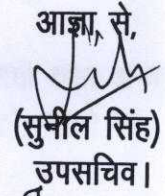 आज्ञा से,
(सुनील सिंह)
उपसचिव।